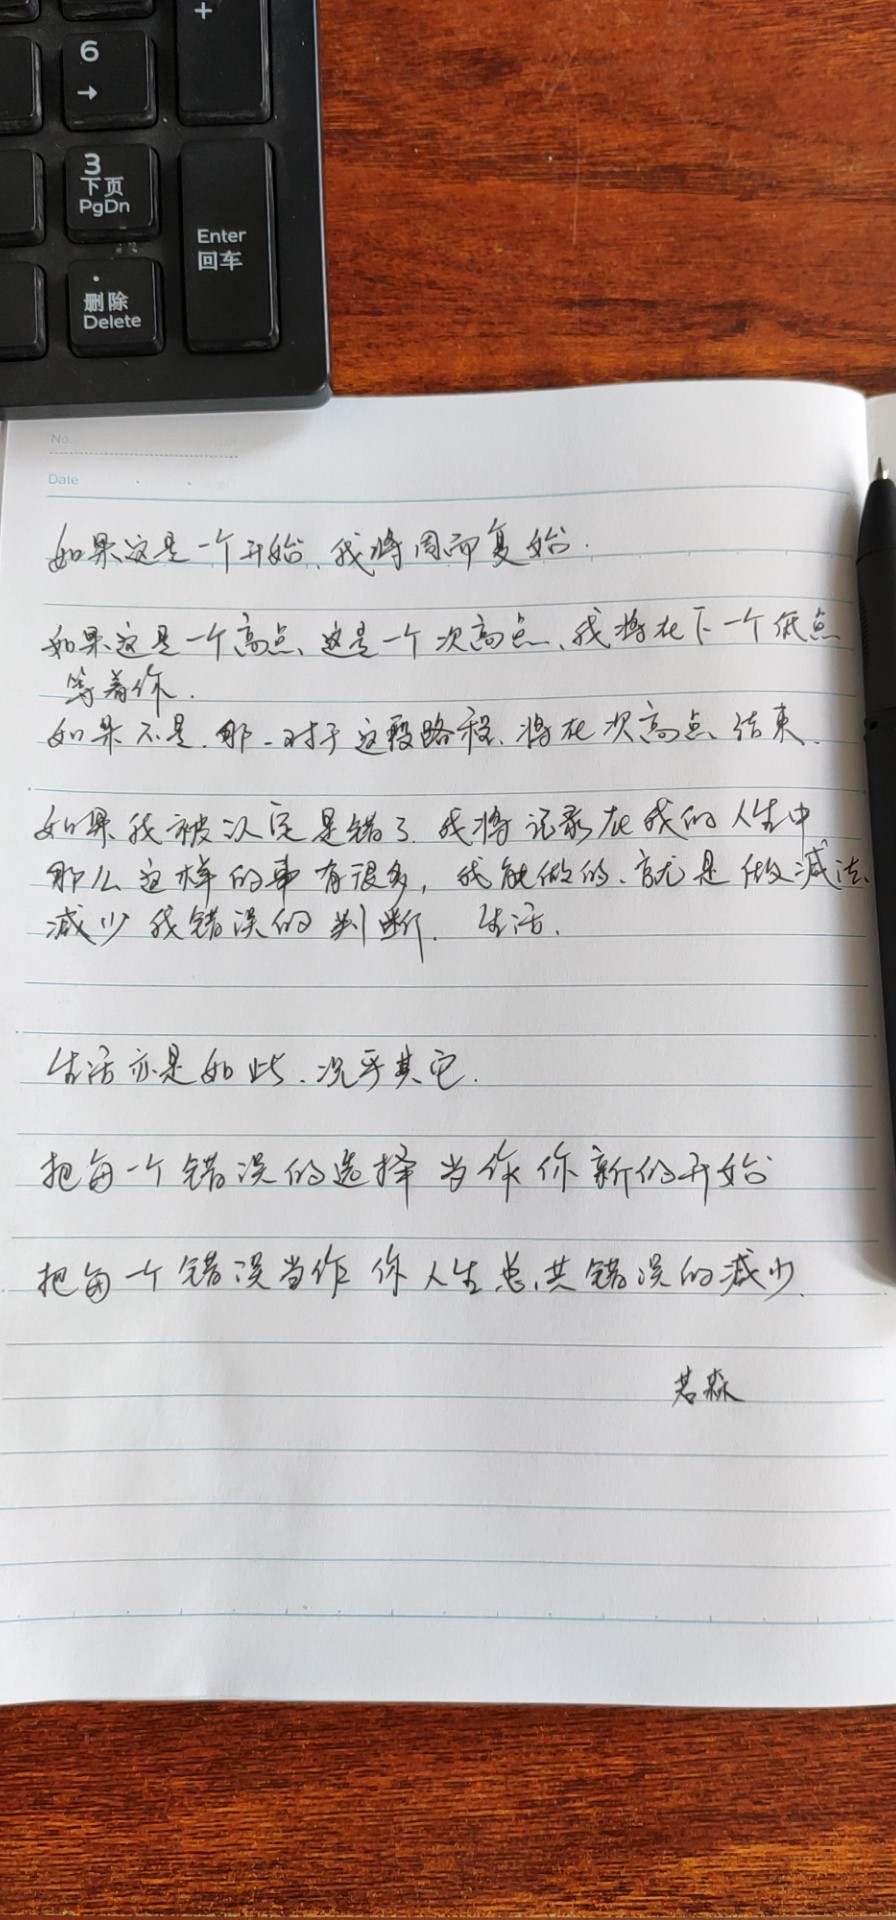 +
6
→
3
下页
PgDn
Enter
回车
删除
Delete
No.
Date
如果这是一个开始、我将周而复始.
如果这是一个高点、这是一个次高点、我将在下一个低点
等着你.
如果不是.那.对于这段路程、将在次高点、结束.
如果我被认定是错了.我将记录在我的人生中
那么这样的事有很多，我能做的、就是做减法、
减少我错误的判断. 生活.
生活亦是如此、况乎其它.
把每一个错误的选择当作你新的开始
把每一个错误当作你人生总共错误的减少.
若森